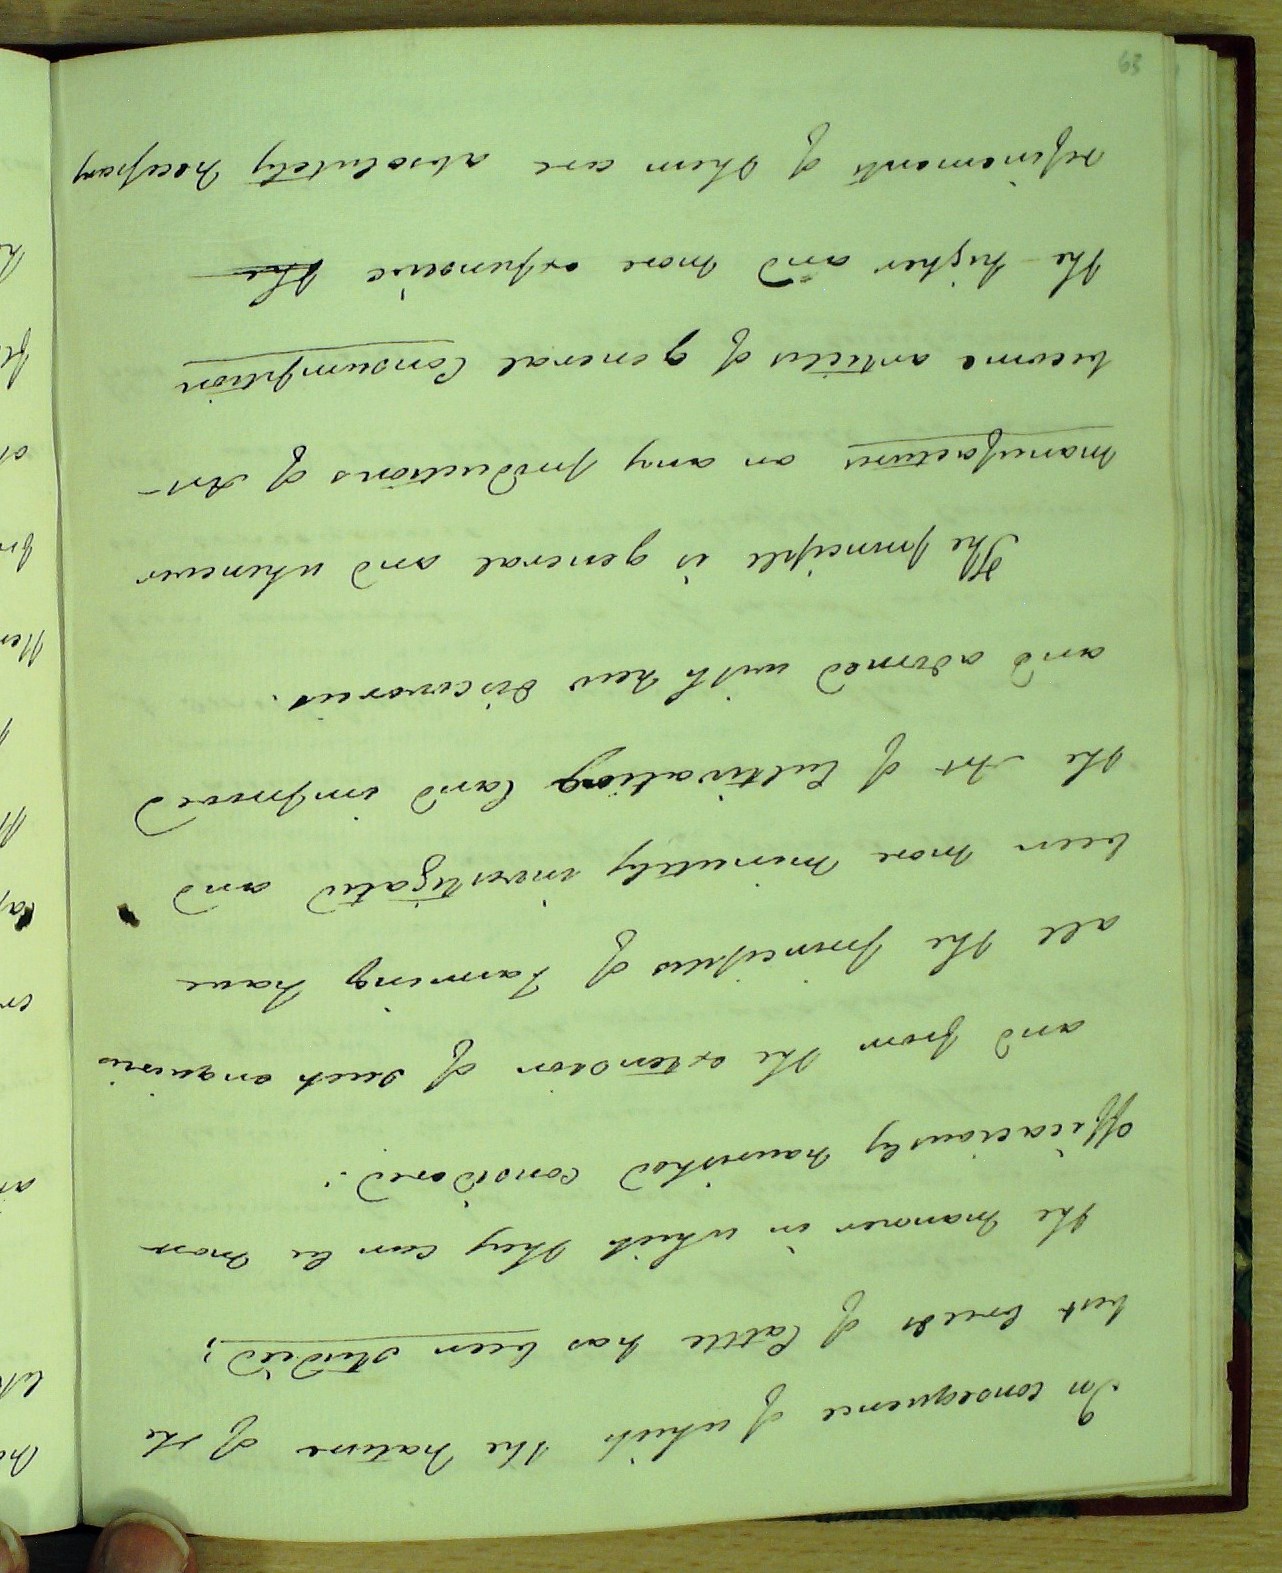 In consequence of which the nature of the
best breeds of Cattle has been studied;
the manner in which they can be most
efficaciously nourished considered:
and from the extension of such enquiries
all the principles of Farming have
been more minutely investigated and
the Art of Cultivating land improved
and adorned with new discoveries.
The principle is general and whenever
manufactures or any productions of Art
become articles of general Consumption
the higher and more expensive the
refinements of them are absolutely necessary
63